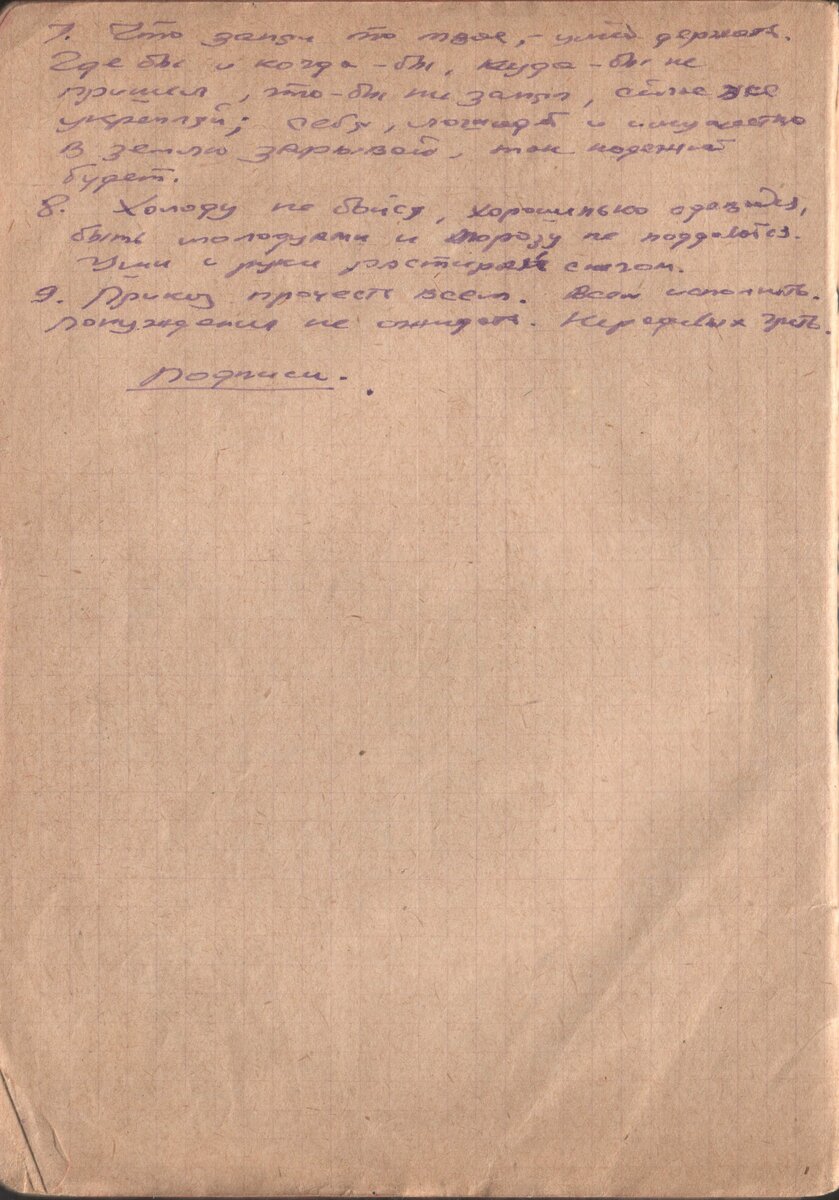 7. Что занял то твое, - умей держать.
Где бы и когда-бы, куда-бы не
пришел, что-бы ни занял, сейчас же
укрепляй; себя, лошадь и имущество
в землю зарывай, так надежней
будет.
8. Холоду не бойся, хорошенько одевайся,
быть молодцами и морозу не поддаваться.
Уши и руки растирай снегом.
9. Приказ прочесть всем. Всем исполнить.
Понуждения не ожидать. Нерадивых греть.
Подписи.